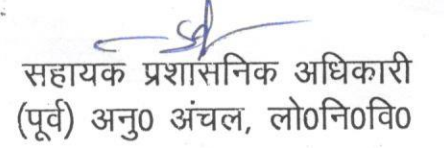 सहायक प्रशासनिक अधिकारी
(पूर्व) अनु0 अंचल, लो0नि0वि0